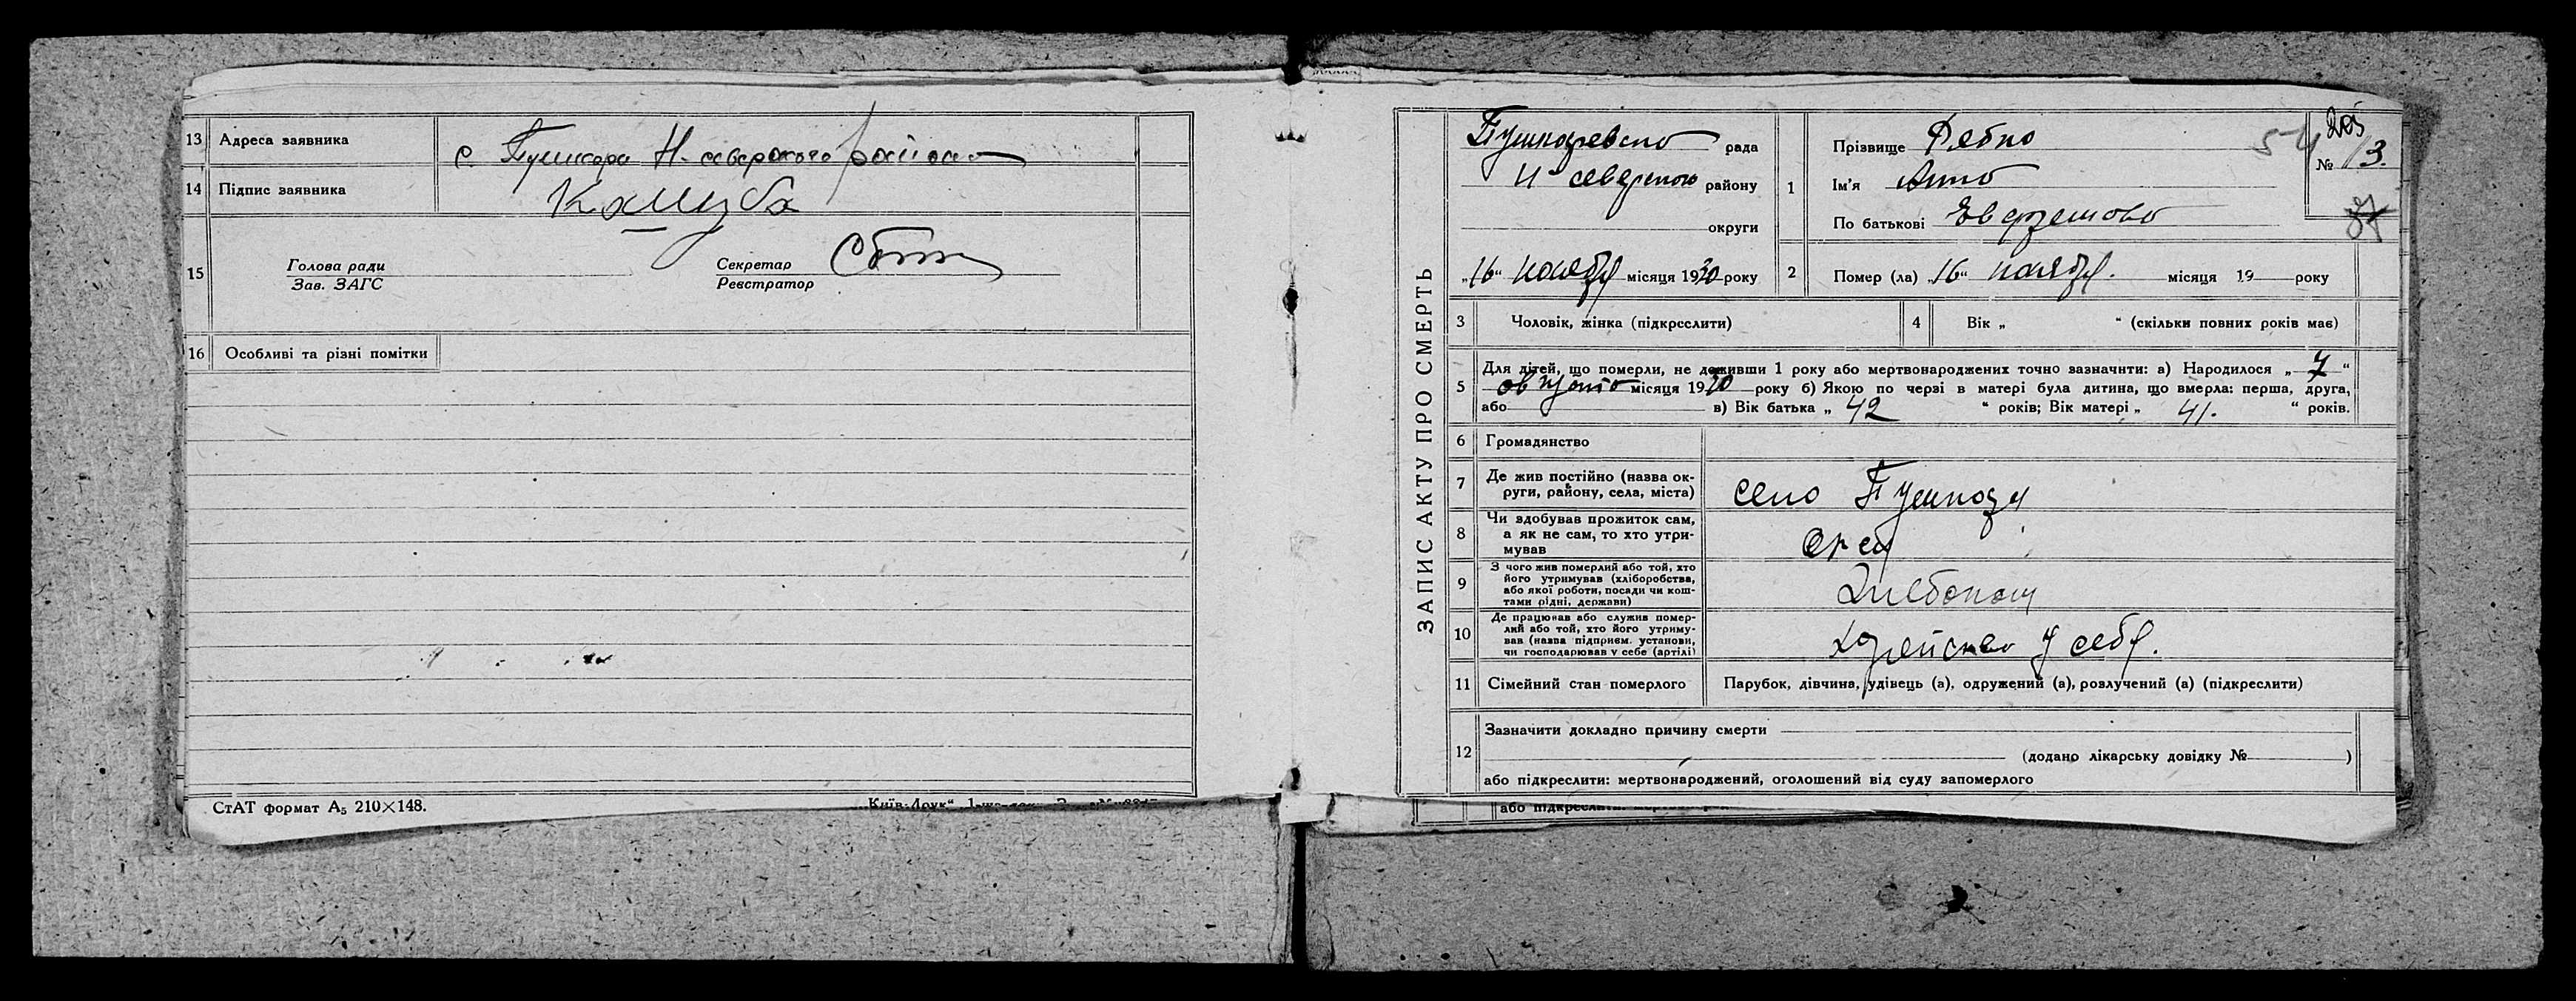 13 Адреса заявника с. Пушкари Н-северского района
14 Підпис заявника Кашуба
15 Голова ради
Зав. ЗАГС
Секретар
Реєстратор
16 Особливі та різні помітки
СтАТ формат А₅ 210×148.
ЗАПИС АКТУ ПРО СМЕРТЬ
Пушкаревско рада
Н северского району
округи
„16“ ноября місяця 1930 року
1 Прізвище Рябко
Ім'я Анна
По батькові
54
205
№ 13.
2 Помер (ла) „16“ ноября. місяця 19 року
3 Чоловік, жінка (підкреслити)
4 Вік „ “ (скільки повних років має)
5 Для дітей, що померли, не доживши 1 року або мертвонароджених точно зазначити: а) Народилося „7“
августа місяця 1930 року б) Якою по черзі в матері була дитина, що вмерла: перша, друга,
або в) Вік батька „ 42 “ років; Вік матері „ 41. “ років.
6 Громадянство
7 Де жив постійно (назва ок-
руги, району, села, міста) село Пушкари
8 Чи здобував прожиток сам,
а як не сам, то хто утри-
мував отец
9 З чого жив померлий або той, хто
його утримував (хліборобства,
або якої роботи, посади чи кош-
тами рідні, держави) Хлебопаш
10 Де працював або служив помер-
лий або той, хто його утриму-
вав (назва підприєм. установи,
чи господарював у себе (артілі) хозяйство у себя.
11 Сімейний стан померлого Парубок, дівчина, удівець (а), одружений (а), розлучений (а) (підкреслити)
12 Зазначити докладно причину смерти
(додано лікарську довідку № )
або підкреслити: мертвонароджений, оголошений від суду запомерлого